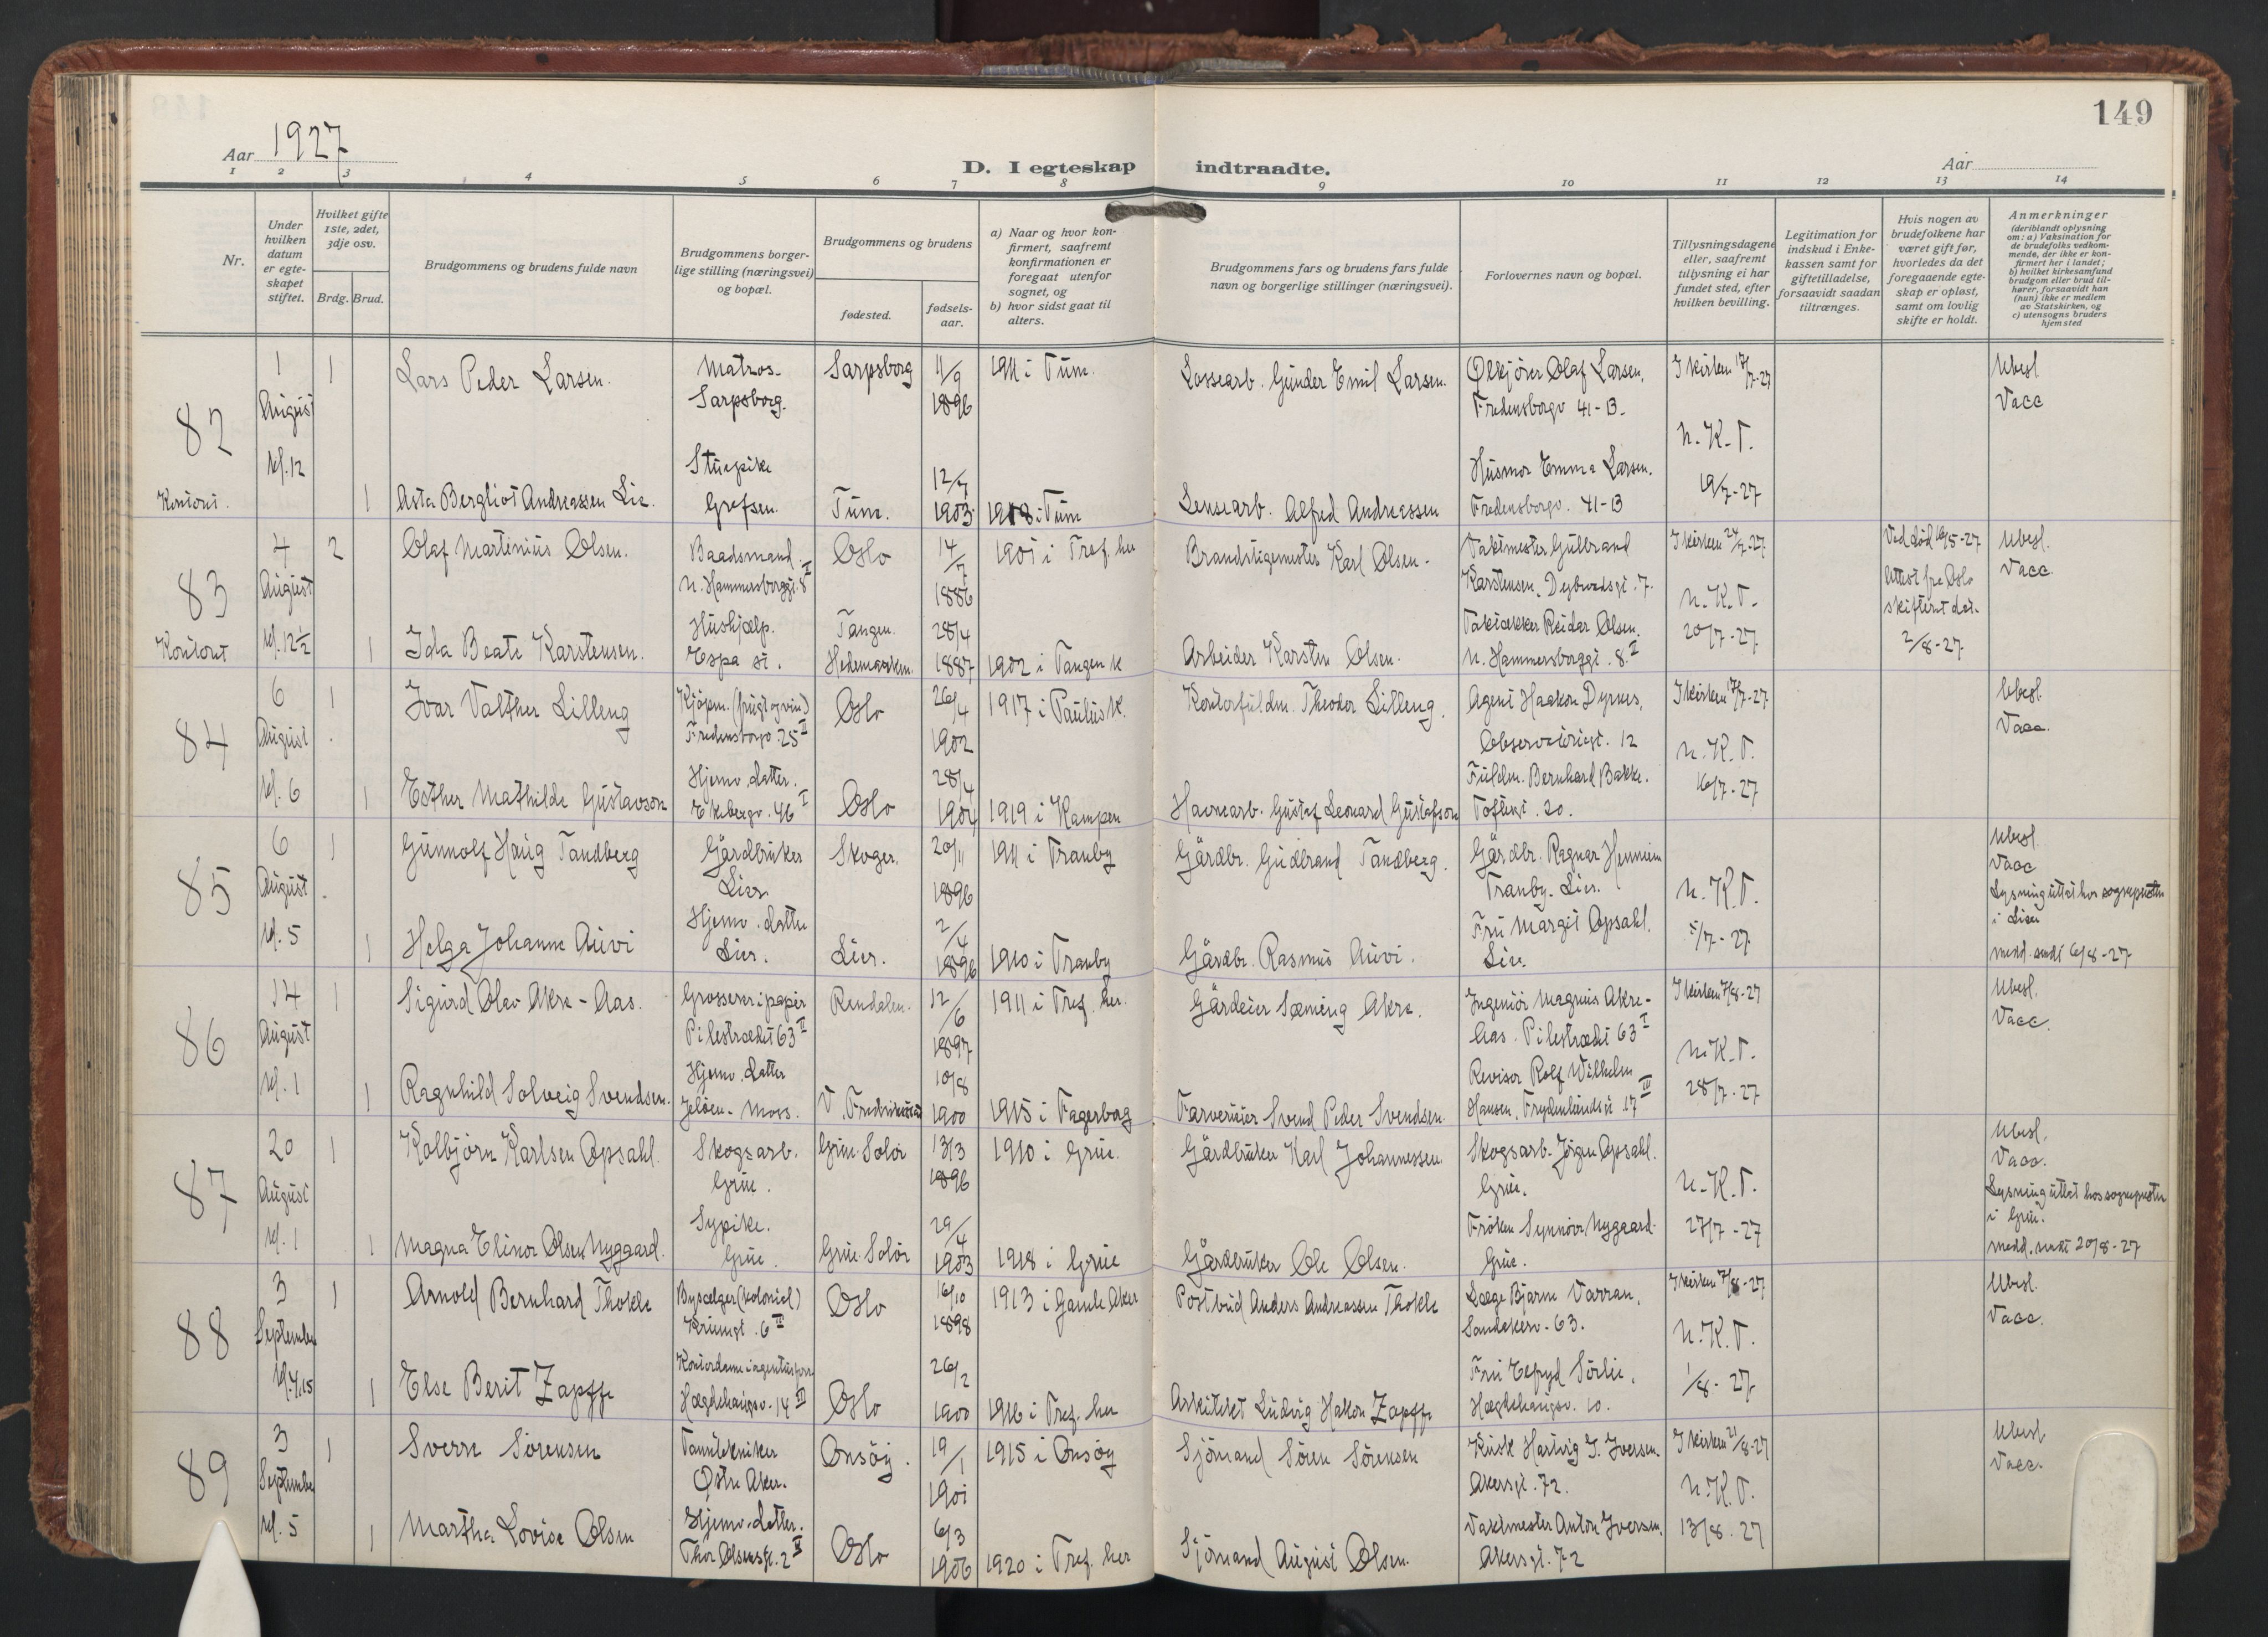 149
Aar 1927
D. I egteskap indtraadte.
Aar
1 2 3 4 5 6 7 8 9 10 11 12 13 14
Nr.
Under hvilken datum er egteskapet stiftet.
Hvilket gifte 1ste, 2det, 3dje osv.
Brdg. Brud.
Brudgommens og brudens fulde navn
Brudgommens borgerlige stilling (næringsvei) og bopæl.
Brudgommens og brudens
fødested.
fødselsaar.
a) Naar og hvor konfirmert, saafremt konfirmationen er foregaat utenfor sognet, og
b) hvor sidst gaat til alters.
Brudgommens fars og brudens fars fulde navn og borgerlige stillinger (næringsvei).
Forlovernes navn og bopæl.
Tillysningsdagene eller, saafremt tillysning ei har fundet sted, efter hvilken bevilling.
Legitimation for indskud i Enkekassen samt for giftetilladelse, forsaavidt saadan tiltrænges.
Hvis nogen av brudefolkene har været gift før, hvorledes da det foregaaende egteskap er opløst, samt om lovlig skifte er holdt.
Anmerkninger (deriblandt oplysning om: a) Vaksination for de brudefolks vedkommende, der ikke er konfirmert her i landet; b) hvilket kirkesamfund brudgom eller brud tilhører, forsaavidt han (hun) ikke er medlem av Statskirken, og c) utensogns bruders hjemsted
82
1 August kl. 12
Kontoret.
1 Lars Peder Larsen. Matros. Sarpsborg. Sarpsborg 11/9 1896 1911 i Tune. Lossearb. Gunder Emil Larsen. Ølkjører Olaf Larsen, Fredensborgv 41-B. I kirken 17/7-27 Ubesl Vacc
1 Asta Bergliot Andreassen Lie. Stuepike Grefsen. Tune. 12/7 1903 1918 i Tune Lensearb. Alfred Andreassen Husmor Emma Larsen. Fredensborgv. 41-B n. K. T. 19/7-27
83
4 August kl. 12½
Kontoret
2 Olaf Martinius Olsen. Baadsmand. N. Hammersborggt. 8 I Oslo 14/7 1886 1901 i Tref. her Brandstigemester Karl Olsen. Vaktmester Gulbrand Karstensen, Dybwadsgt. 7. I kirken 24/7-27. Ved død 16/5-27 Attest fra Oslo skifteret dat. 2/8-27 Ubesl. Vacc.
1 Ida Beate Karstensen. Hushjælp. Espa st. Tangen. Hedemarken. 28/4 1887 1902 i Tangen k Arbeider Karsten Olsen. Taktækker Reidar Olsen. N. Hammersborggt. 8. II n. K. T. 20/7-27
84
6 August kl. 6
1 Ivar Valther Lilleng Kjøpm. (frugt og vin) Fredensborgv. 25 II Oslo 26/4 1902 1917 i Paulus k. Kontorfuldm. Theodor Lilleng. Agent Haakon Dyrnes, Observatoriegt. 12 I kirken 17/7-27 Ubesl. Vacc.
1 Esther Mathilde Gustavson Hjemv. datter. Ekebergv. 46 I Oslo 28/4 1904 1919 i Kampen Havnearb. Gustaf Leonard Gustafson Fuldm. Bernhard Bakke. Toftesgt. 20. n. K. T. 16/7-27
85
6 August kl. 5
1 Gunnolf Haug Tandberg Gårdbruker Lier Skoger. 20/11 1896 1911 i Tranby Gårdbr. Gudbrand Tandberg. Gårdbr. Ragnar Hennum Tranby. Lier. n. K. T. Ubesl. Vacc Lysning uttat hos sogneprester i Lier
1 Helga Johanne Auvi Hjemv. datter Lier. Lier. 2/4 1896 1910 i Tranby Gårdbr. Rasmus Auvi. Fru Margit Opsahl, Lier. 5/7-27 medd. sendt 6/8-27
86
14 August kl. 1
1 Sigurd Olav Akre-Aas. Grosserer i papir Pilestrædet 63 II Rendalen. 12/6 1897 1911 i Tref. her. Gårdeier Sæming Akre. Ingeniør Magnus Akre-Aas. Pilestrædet 63 I I kirken 7/8-27 Ubesl. Vacc.
1 Ragnhild Solveig Svendsen. Hjemv. datter Jeløen. Moss. V. Fredrikstad 10/8 1900 1915 i Fagerborg Farvermester Svend Peder Svendsen. Revisor Rolf Wilhelm Hansen, Frydenlundsgt. 17 III n. K. T. 28/7-27
87
20 August kl. 1
1 Kolbjørn Karlsen Opsahl. Skogsarb. Grue. Grue. Solør 13/3 1896 1910 i Grue. Gårdbruker Karl Johannessen Skogsarb. Jørgen Opsahl. Grue. n. K. T. Ubesl. Vacc. Lysning uttat hos sogneprester i Grue.
1 Magna Elinor Olsen Nygaard. Sypike. Grue. Grue. Solør 29/4 1903 1918 i Grue Gårdbruker Ole Olsen. Frøken Synnøve Nygaard. Grue. 27/7-27 medd. sendt 20/8-27
88
3 September kl. 4,15
1 Arnold Bernhard Thokle Bysælger (kolonial) Oslo 16/10 1898 1913 i Gamle Aker Postbud Anders Andreassen Thokle Læge Bjarne Varran, Sandakerv. 63. I kirken 7/8-27 Ubesl. Vacc.
1 Else Berit Zapffe Kontordame i agenturforr Hægdehaugsv. 14 III Oslo 26/2 1900 1916 i Tref. her Arkitekt Ludvig Hakon Zapffe Fru Sørlie, Hægdehaugsv. 10. n. K. T. 1/8-27.
89
3 September kl. 5
1 Sverre Sørensen Tanntekniker Østre Aker. Onsøy. 19/1 1901 1915 i Onsøy Sjømand Søren Sørensen Kusk Hartvig J. Iversen. Akersgt. 72. I kirken 21/8-27 Ubesl Vacc.
1 Martha Lovise Olsen Hjemv. datter. Thor Olsensgt. 2 II Oslo 6/3 1906 1920 i Tref. her Sjømand August Olsen. Vaktmester Anton Iversen, Akersgt. 72 n. K. T. 13/8. 27